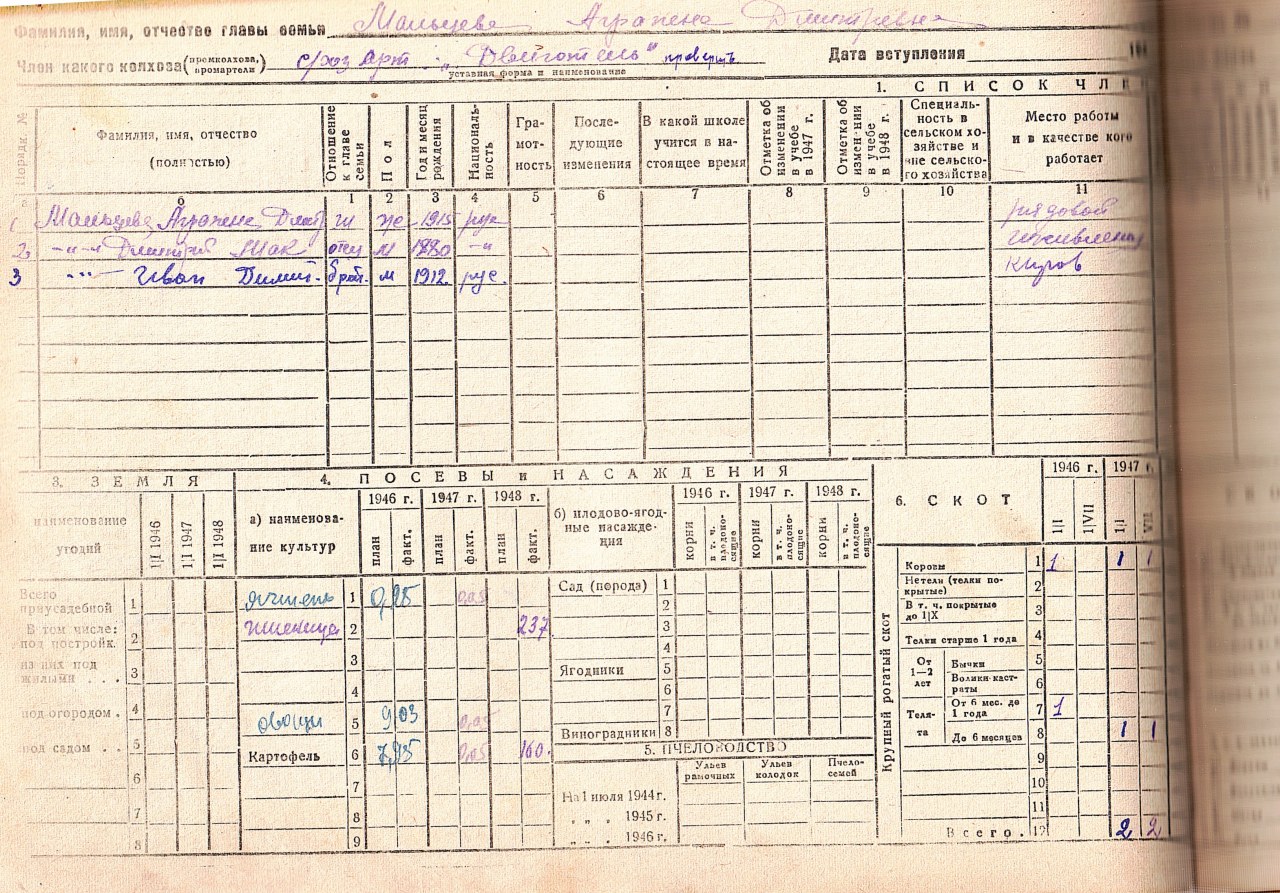 Фамилия, имя, отчество главы семьи Мальцева Аграпена Дмитревна
Член какого колхоза (промколхоза, промартели) с/хоз Арт. „Двигатель"
уставная форма и наименование
Дата вступления
1. СПИСОК ЧЛЕ
Порядк. №
Фамилия, имя, отчество (полностью)
Отношение к главе семьи
Пол
Год и месяц рождения
Националь-ность
Гра-мот-ность
После-дующие изменения
В какой школе учится в на-стоящее время
Отметка об изменении в учебе в 1947 г.
Отметка об измен-нии в учебе в 1948 г.
Специаль-ность в сельском хо-зяйстве и не сельско-го хозяйства
Место работы и в качестве кого работает
б 1 2 3 4 5 6 7 8 9 10 11
1 Мальцева Аграпена Дмит гл 1915 рус рядовой
2 -"-" Дмитрий Мак отец м 1880 -"
3 -"- Иван Димит. брат. м 1912. рус. Киров
3. ЗЕМЛЯ
наименование угодий
1|I 1946
1|I 1947
1|I 1948
Всего приусадебной 1
В том числе: под постройк. 2
из них под жилыми . . . 3
под огородом . 4
под садом . . 5
6
7
8
4. ПОСЕВЫ и НАСАЖДЕНИЯ
а) наименова-ние культур
1946 г. 1947 г. 1948 г.
план факт. план факт. план факт.
ячмень 1 0,05
пшеница 2 237
3
4
овощи 5
Картофель 6 0,05 160.
7
8
9
б) плодово-ягод-ные насажде-ния
1946 г. 1947 г. 1948 г.
корни в т. ч. плодоно-сящие корни в т. ч. плодоно-сящие корни в т. ч. плодоно-сящие
Сад (порода) 1
2
3
4
Ягодники 5
6
7
Виноградники 8
5. ПЧЕЛОВОДСТВО
Ульев рамочных
Ульев колодок
Пчело-семей
На 1 июля 1944 г.
„ „ „ 1945 г.
„ „ „ 1946 г.
6. СКОТ
1946 г. 1947 г.
1|I 1|VII 1|I VII
Крупный рогатый скот
Коровы 1 1 1 1
Нетели (телки по-крытые) 2
В т. ч. покрытые до 1|IX 3
Телки старше 1 года 4
От 1—2 лет
Бычки 5
Волики-каст-раты 6
Теля-та
От 6 мес. до 1 года 7 1
До 6 месяцев 8 1 1
9
10
11
Всего . 12 2 2